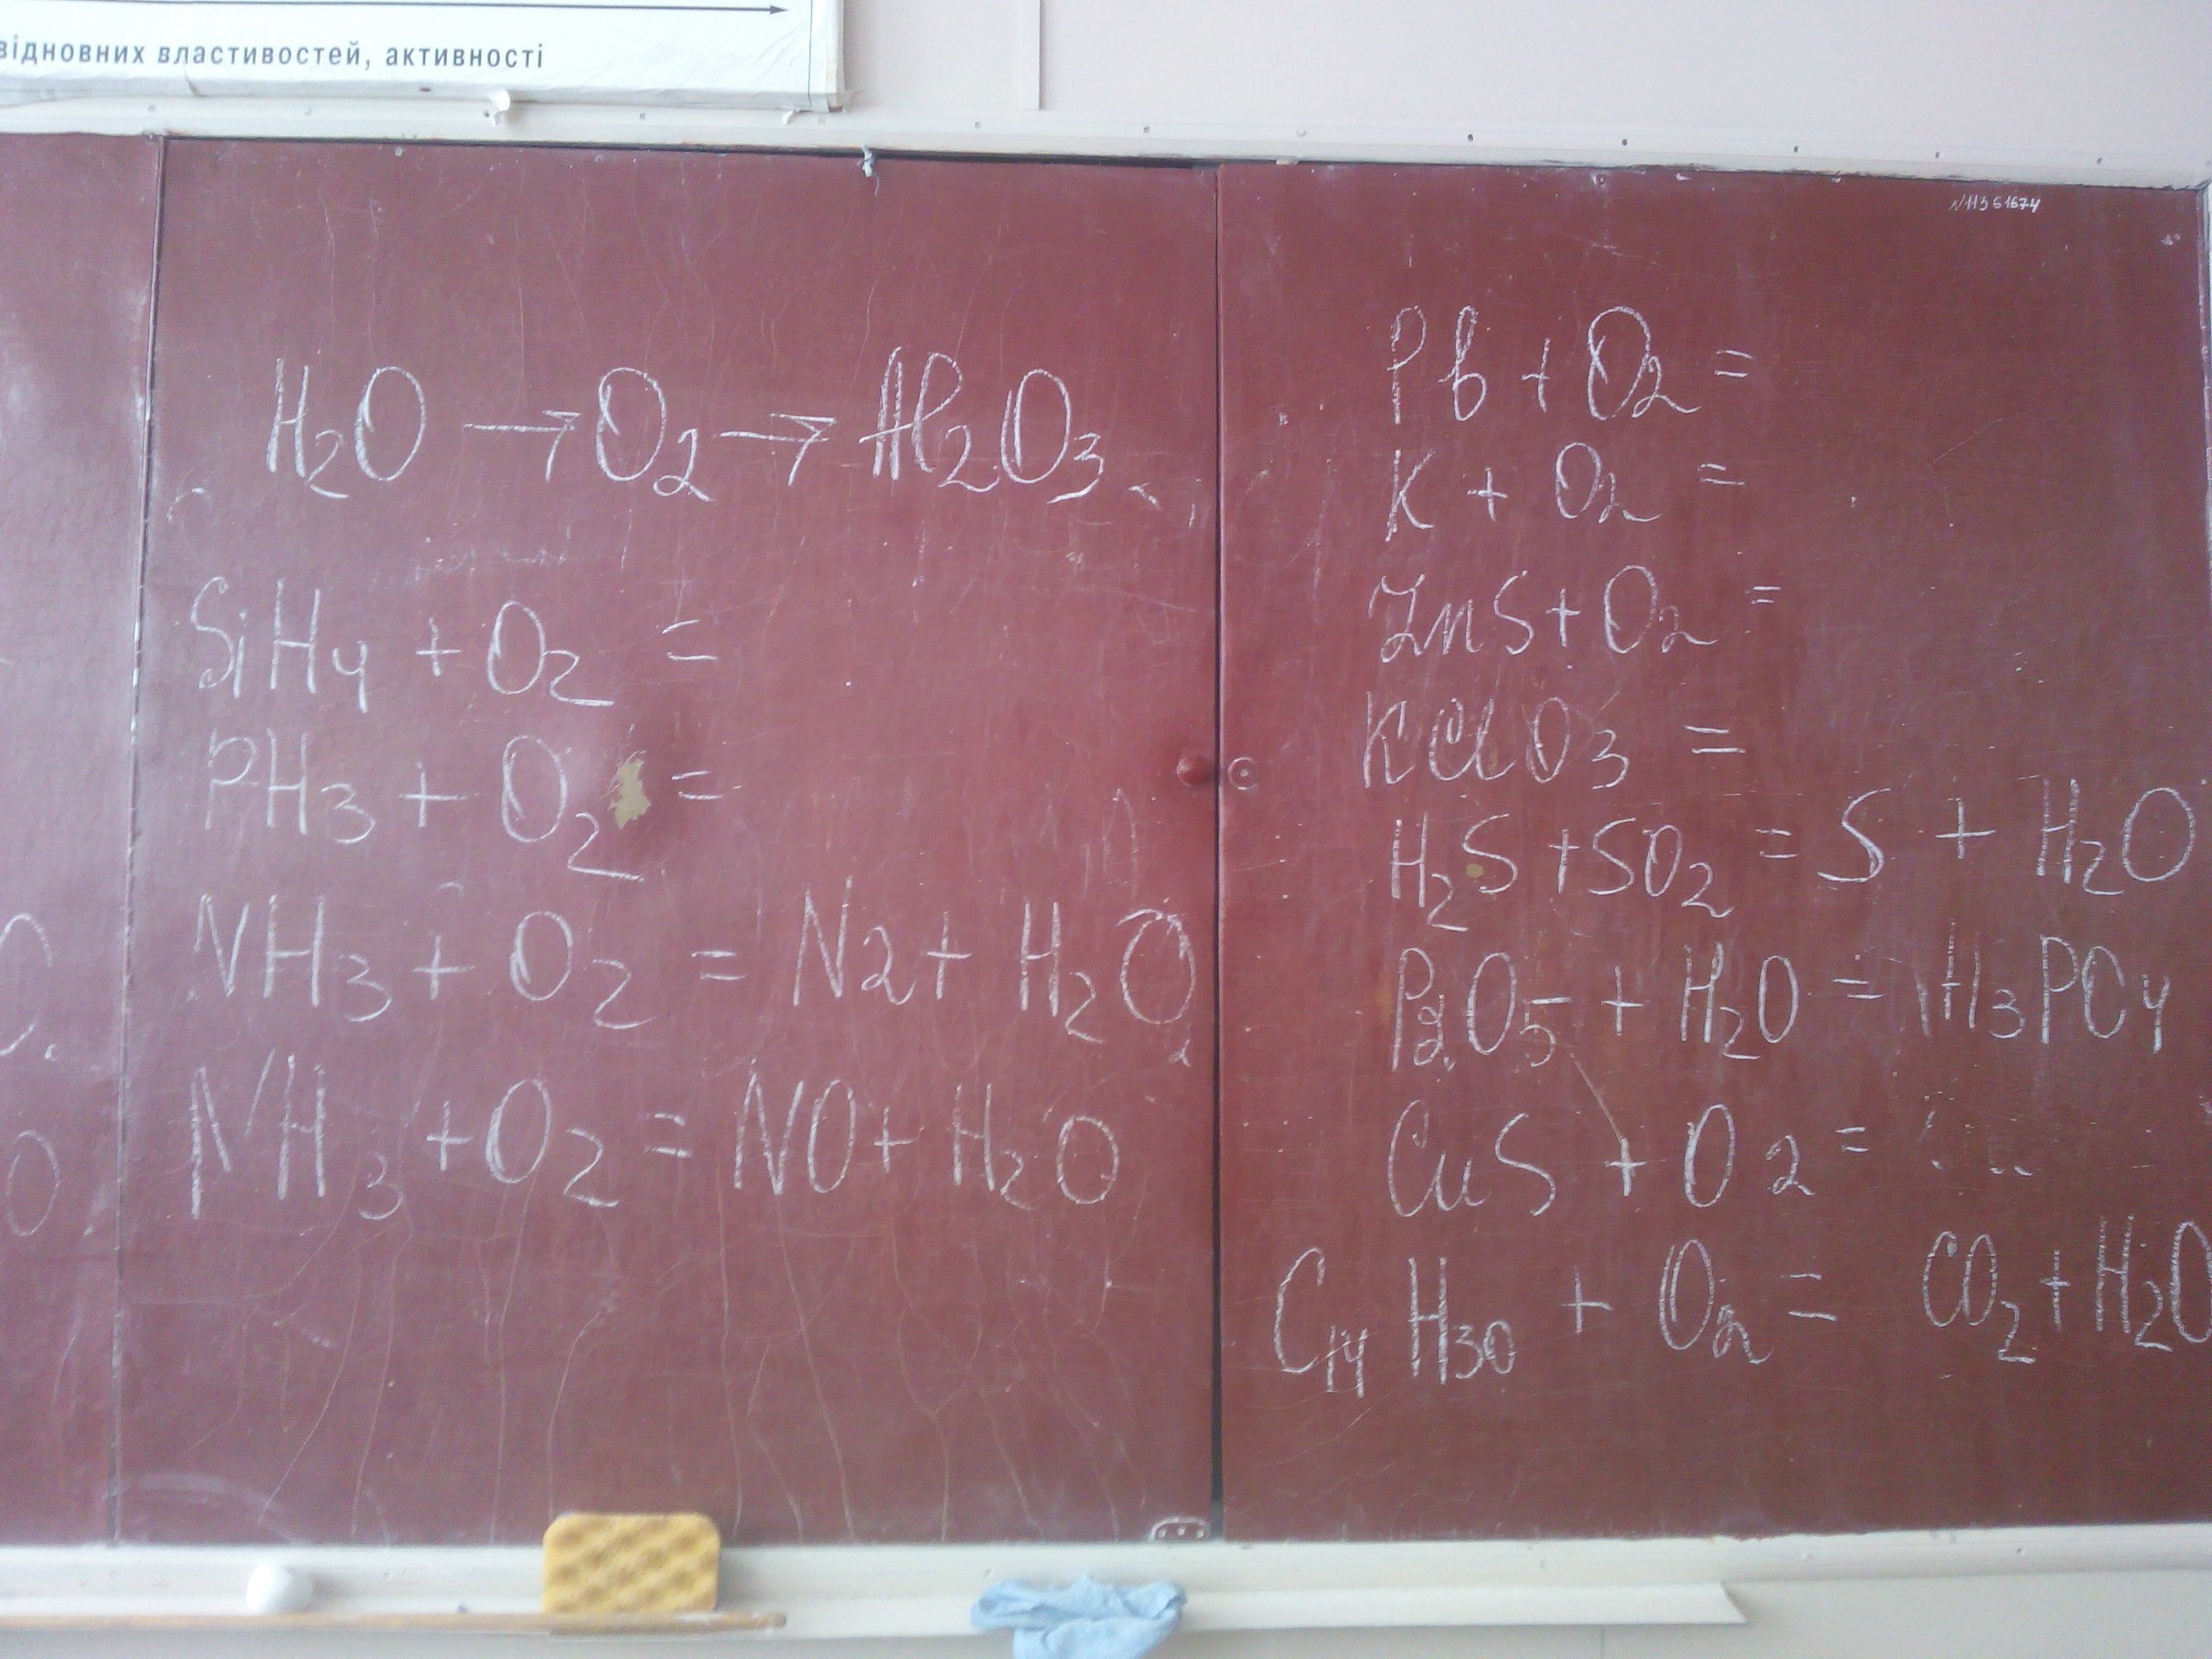 відновних властивостей, активності
H₂O → O₂ → Al₂O₃
SiH₄ + O₂ =
PH₃ + O₂ =
NH₃ + O₂ = N₂ + H₂O
NH₃ + O₂ = NO + H₂O
N11361674
Pb + O₂ =
K + O₂ =
ZnS + O₂ =
KClO₃ =
H₂S + SO₂ = S + H₂O
P₂O₅ + H₂O = H₃PO₄
CuS + O₂ =
C₁₄H₃₀ + O₂ = CO₂ + H₂O